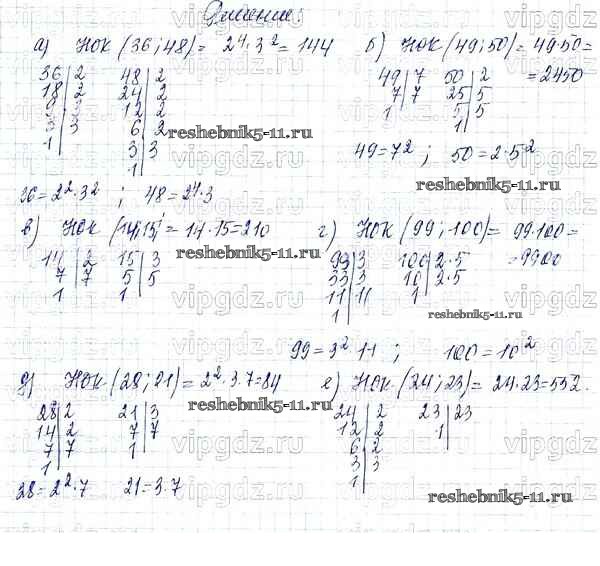 Решение:
а) НОК (36; 48) = 2⁴·3² = 144
36 | 2   48 | 2
18 | 2   24 | 2
9 | 3   12 | 2
3 | 3   6 | 2
1 |   3 | 3
1 |
36 = 2²·3² ; 48 = 2⁴·3
б) НОК (49; 50) = 49·50 =
= 2450
49 | 7   50 | 2
7 | 7   25 | 5
1 |   5 | 5
1 |
49 = 7² ; 50 = 2·5²
в) НОК (14; 15) = 14·15 = 210
14 | 2   15 | 3
7 | 7   5 | 5
1 |   1 |
г) НОК (99; 100) = 99·100 =
= 9900
99 | 3   100 | 2·5
33 | 3   10 | 2·5
11 | 11   1 |
1 |
99 = 3²·11 ; 100 = 10²
д) НОК (28; 21) = 2²·3·7 = 84
28 | 2   21 | 3
14 | 2   7 | 7
7 | 7   1 |
1 |
28 = 2²·7   21 = 3·7
е) НОК (24; 23) = 24·23 = 552.
24 | 2   23 | 23
12 | 2   1 |
6 | 2
3 | 3
1 |
reshebnik5-11.ru
reshebnik5-11.ru
reshebnik5-11.ru
reshebnik5-11.ru
reshebnik5-11.ru
reshebnik5-11.ru
vipgdz.ru